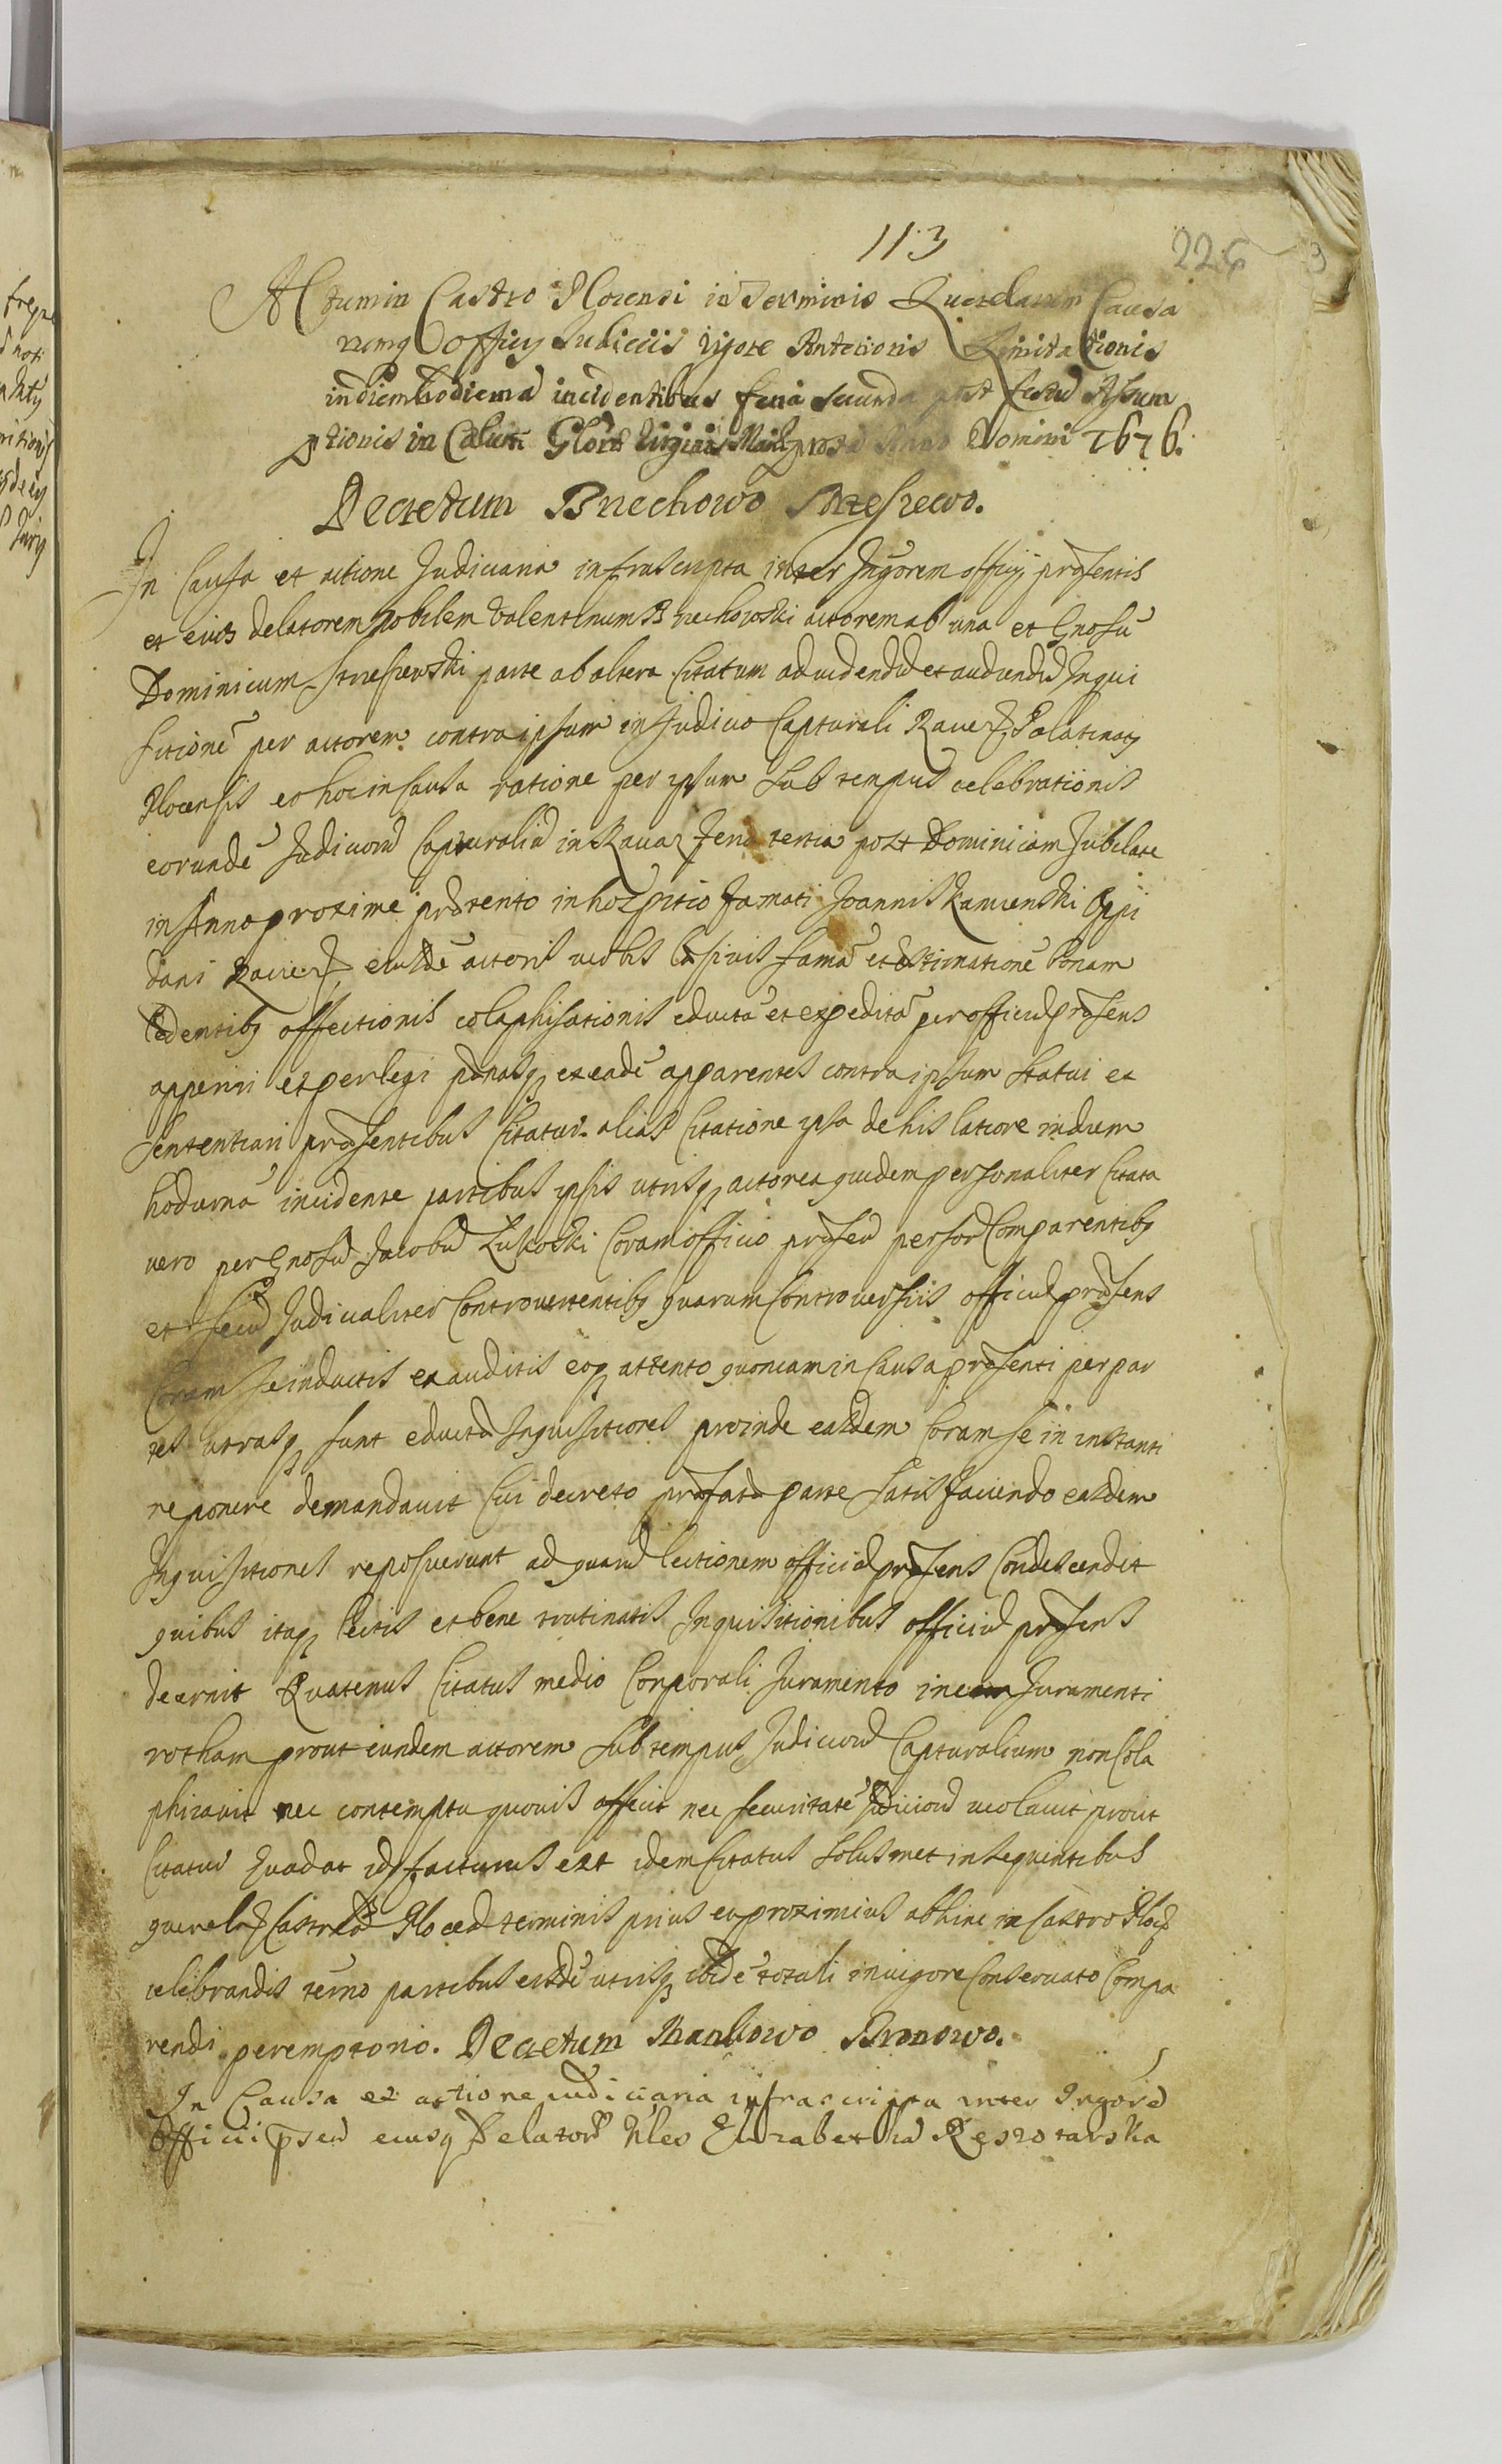 113
226
3
Actum in Castro Plocensi in Terminis Querelarum Causa
rumq Officij Judiciis vigore Anterioris Limitationis
in diem hodiernā incidentibus feria secunda post festū Assum
ptionis in Cælum Glorā Virginis Mariæ proxa Anno Domini 1676.
Decretum Brzechowo Strzeszewo.
In Causa et actione Judiciaria infrascripta inter Ingrorem officij præsentis
et eius delatorem Nobilem Valentinum Brzechowski actorem ab una et Gnosū
Dominicum Strzeszewski parte ab altera Citatum ad videndū et audiendū Inqui
sitionē per actorem contra ipsum in Judicio Capturali Raue Palatinatq
Plocensis eo hoc in Causa ratione per ipsum sub tempus celebrationis
eorundē Judiciorū Capturaliū in Rava feria tertia post Dominicam Jubilate
in Anno proxime præterito in hospitio famati Joannis Kamienski Oppi
dani Raue eiusdē actoris verbis læsivis famā et æstimationē bonam
lædentibq affectionis colaphisationis eductā et expeditā per officiū præsens
apperiri et perlegi pænasq ex eadē apparentes contra ipsum statui et
sententiari præsentibus Citatur. alias Citatione ipsa de his latiore in diem
hodiernā incidente partibus ipsis utrisq actorea quidem personaliter Citata
vero per Gnosū Jacobū Łukoski Coram officio præsen person Comparentibq
et secū Judicialiter Controvertentibq quarum Controversiis officiū præsens
Coram se inductis exauditis eoq attento quoniam in Causa præsenti per par
tes utrasq sunt eductæ Inquisitiones proinde easdem Coram se in instanti
reponere demandavit Cui decreto præfatæ parte satisfaciendo easdem
Inquisitiones reposuerunt ad quarū lectionem officiū præsens Condescendit
quibus itaq lectis et bene trutinatis Inquisitionibus officiū præsens
decernit Quatenus Citatus medio Corporali Juramento in eam Juramenti
rotham prout eundem actorem sub tempus Judiciorū Capturalium non Cola
phizavit nec contemptu quovis affecit nec securitatē Judiciorū violavit prout
Citatur Evadat id facturus est idem Citatus solusmet in sequentibus
querelar Castrens Plocen terminis prius et proximius abhinc in Castro Ploc
celebrandis termo partibus eisdē utrisq ibidē totali in vigore Conservato Compa
rendi peremptorio. Decretum Bronowo.
In Causa et actione iudiciaria infrascripta inter Ingrorē
Officii pæsen eiusq Delatorē Nleo Elizabetha